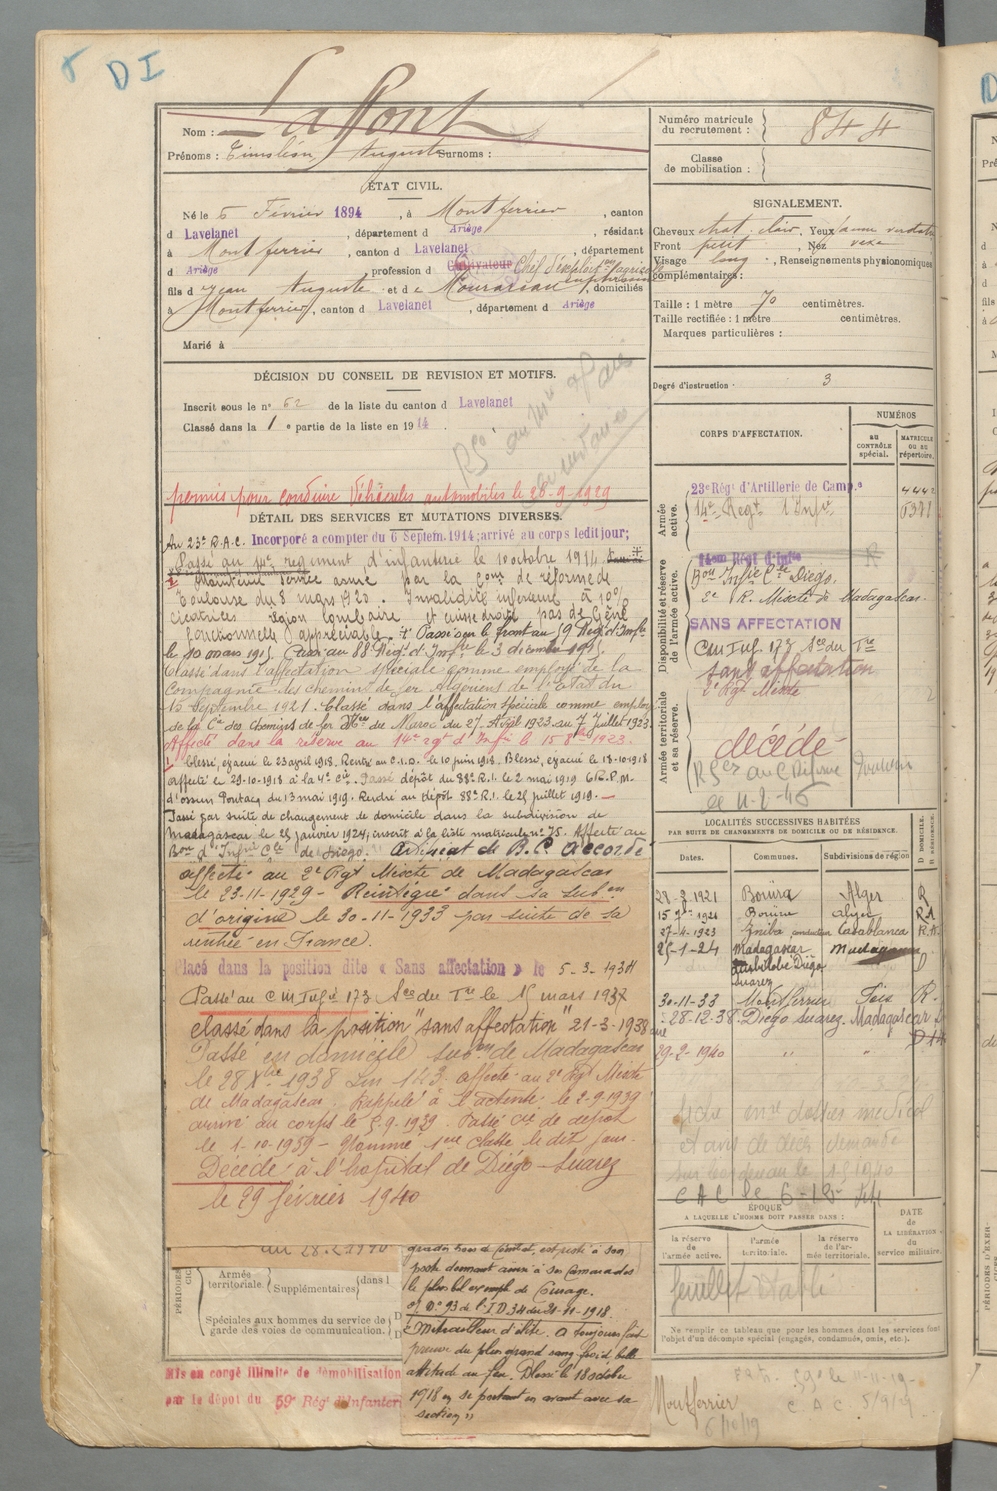 DI
Nom : Laffont
Prénoms : Timoléon Auguste Surnoms :
ÉTAT CIVIL.
Né le 5 Février 1894, à Montferrier, canton
d Lavelanet, département d Ariège, résidant
à Montferrier, canton d Lavelanet, département
d Ariège, profession d Cultivateur Chef d'exploit on agricole
fils d Jean Auguste et de, domiciliés
à Montferrier, canton d Lavelanet, département d Ariège
Marié à
DÉCISION DU CONSEIL DE REVISION ET MOTIFS.
Inscrit sous le n° 62 de la liste du canton d Lavelanet
Classé dans la 1 e partie de la liste en 1914.
permis pour conduire Véhicules automobiles le 28-9-1929
DÉTAIL DES SERVICES ET MUTATIONS DIVERSES.
Au 23e R.A.C. Incorporé a compter du 6 Septem. 1914; arrivé au corps ledit jour;
Passé au 14e regiment d'infanterie le 10 octobre 1914
Maintenu service armé par la Con de réforme de
Toulouse du 8 mars 1920. Invalidité inférieure à 10%
cicatrices région lombaire et cuisse droite pas de gêne
fonctionnelle appréciable. Passé au front au 59 Régt d'Infie
le 10 mars 1915. Passé au 88 Régt d'Infie le 3 décembre 1915.
Classé dans l'affectation spéciale comme employé de la
Compagnie des chemins de fer Algériens de l'Etat du
15 Septembre 1921. Classé dans l'affectation spéciale comme employé
de la Cie des Chemins de fer du Maroc du 27 Avril 1923 au 7 Juillet 1923.
Affecté dans la réserve au 14e rgt d'Infie le 15 8bre 1923.
Blessé, évacué le 23 avril 1918. Rentré au C.I.D. le 10 juin 1918. Blessé, évacué le 18-10-1918
affecté le 29-10-1918 à la 4e Cie. Passé dépôt du 88e R.I. le 2 mai 1919
d'ossun Pontacq du 13 mai 1919. Rentré au dépôt 88e R.I. le 25 juillet 1919.
Passé par suite de changement de domicile dans la subdivision de
Madagascar le 25 janvier 1924; inscrit à la liste matricule n° 75. Affecté au
Bon d'Infie Cle de Diégo. Certificat de B.C. accordé
affecté au 2e Rgt Mixte de Madagascar
le 23-11-1929 - Réintégré dans sa subon
d'origine le 30-11-1933 par suite de sa
rentrée en France.
Placé dans la position dite « Sans affectation » le 5-3-1934
Passé au CM Infie 173 Son du Tre le 15 mars 1937
classé dans la position "sans affectation" 21-3-1938
Passé en domicile subon de Madagascar
le 28 Xbre 1938 Lin 143 affecté au 2e Rgt Mixte
de Madagascar. Rappelé à l'activité le 2-9-1939
arrivé au corps le 5-9-1939. Passé Cie de dépôt
le 1-10-1939 - Nommé 1ère classe le dit jour.
Décédé à l'hopital de Diégo-Suarez
le 29 février 1940
Armée territoriale. Supplémentaires dans l
Spéciales aux hommes du service de garde des voies de communication.
poste donnant ainsi à ses camarades
le plus bel exemple de Courage.
O/ D° 93 de l'I D 34 du 21-11-1918.
"Mitrailleur d'élite. A toujours fait
preuve du plus grand sang froid, belle
attitude au feu. Blessé le 18 octobre
1918 en se portant en avant avec sa
section"
Mis en congé illimité de démobilisation
par le dépot du 59e Rég d'Infanterie
Numéro matricule du recrutement : 844
Classe de mobilisation :
SIGNALEMENT.
Cheveux chat. clair, Yeux
Front petit, Nez vexe
Visage long, Renseignements physionomiques
complémentaires :
Taille : 1 mètre 70 centimètres.
Taille rectifiée : 1 mètre centimètres.
Marques particulières :
Degré d'instruction : 3
CORPS D'AFFECTATION.
NUMÉROS
au CONTRÔLE spécial.
MATRICULE OU AU répertoire.
Armée active.
23e Régt d'Artillerie de Camp.e
14e Régt d'Infie
Disponibilité et réserve de l'armée active.
14em Régt d'Infie
Bon Infie Cle Diego.
2e R. Mixte de Madagascar.
SANS AFFECTATION
CM Inf. 173 Son du Tre
sans affectation
Armée territoriale et sa réserve.
2e Rgt Mixte
décédé
le 11-2-46
LOCALITÉS SUCCESSIVES HABITÉES
PAR SUITE DE CHANGEMENTS DE DOMICILE OU DE RÉSIDENCE.
Dates. Communes. Subdivisions de région
D DOMICILE. R RÉSIDENCE.
1921 Bouira Alger R
1921 Bouira Alger
27-4-1923 Casablanca
25-1-24 Madagascar Madagascar D
Ambilobe Diégo
Suarez
30-11-33 Montferrier Foix R.
28-12-38 Diego Suarez. Madagascar
29-2-1940 " "
C A C le
ÉPOQUE
A LAQUELLE L'HOMME DOIT PASSER DANS :
DATE de LA LIBÉRATION du service militaire.
la réserve de l'armée active.
l'armée territoriale.
la réserve de l'armée territoriale.
feuillet établi
Ne remplir ce tableau que pour les hommes dont les services font
l'objet d'un décompte spécial (engagés, condamnés, omis, etc.).
Montferrier
C.A.C. 5/9/19
6/10/19